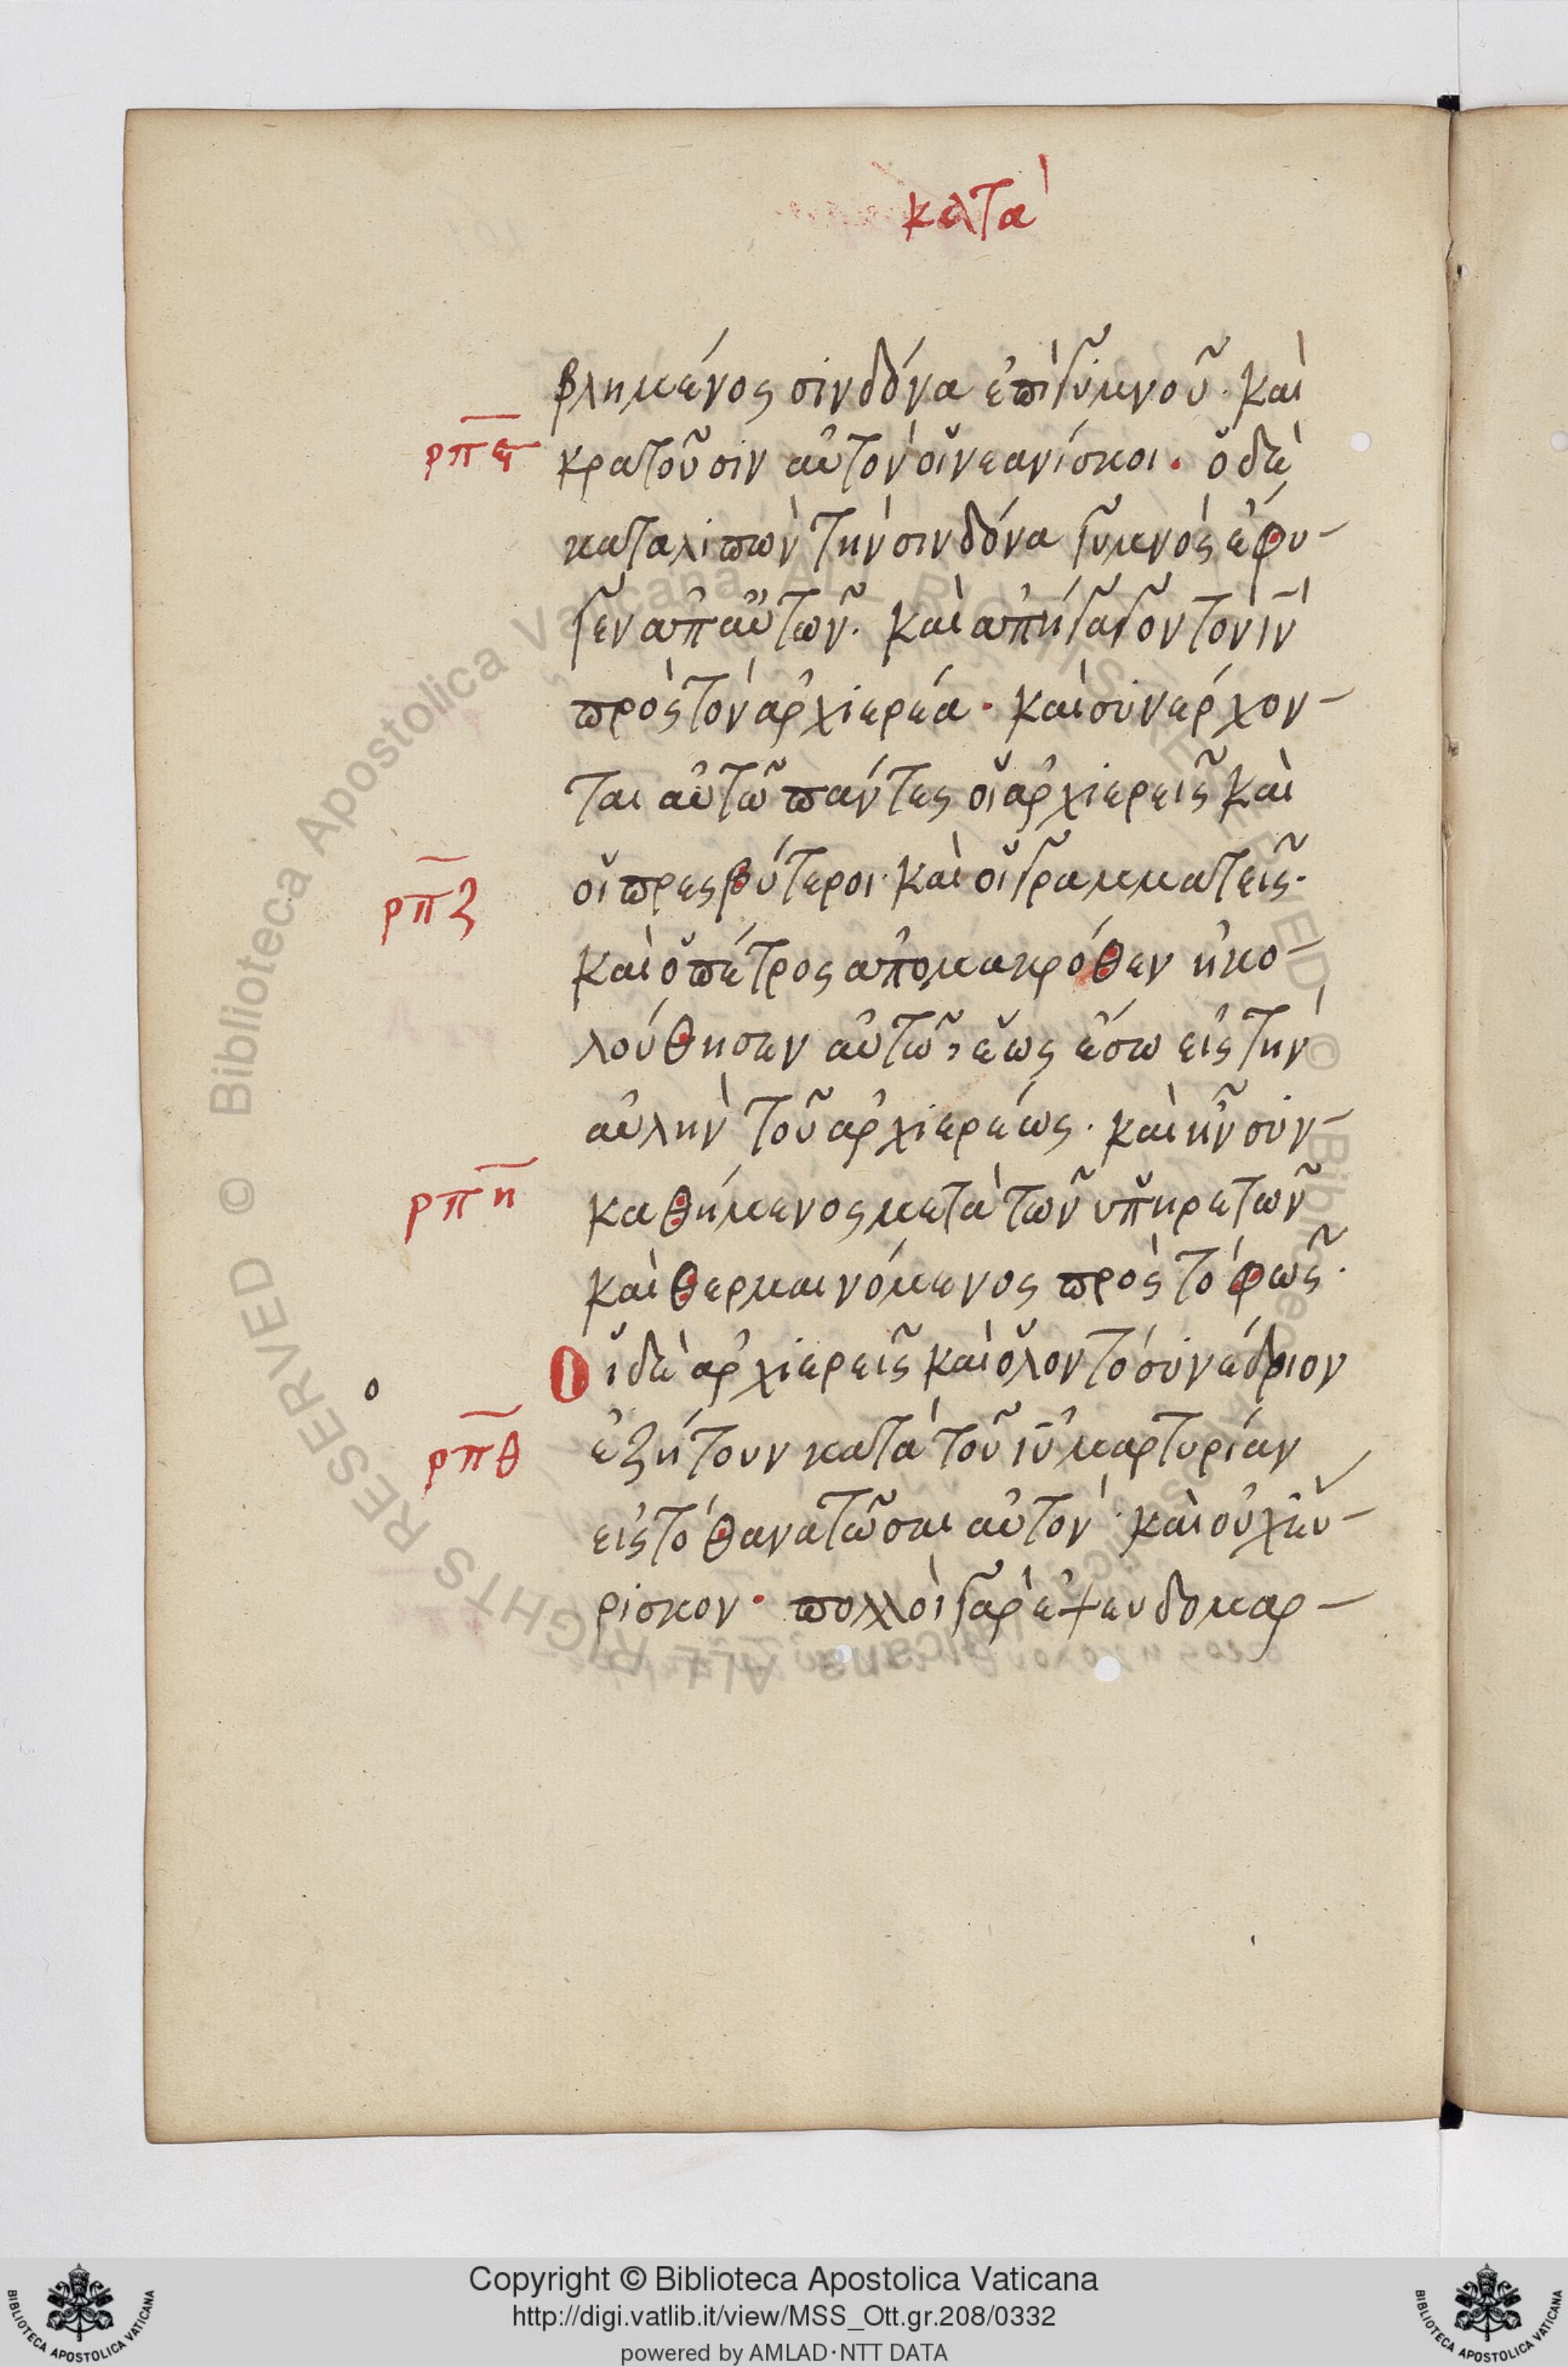 κατὰ
βλημένος σινδόνα ἐπὶ γυμνοῦ· καὶ
ρπϛ κρατοῦσιν αὐτὸν οἱ νεανίσκοι· ὁ δὲ
καταλιπὼν τὴν σινδόνα γυμνὸς ἔφυ-
γεν ἀπ αὐτῶν· καὶ ἀπήγαγον τὸν ιν
πρὸς τὸν ἀρχιερέα· καὶ συνέρχον-
ται αὐτῶ πάντες οἱ ἀρχιερεῖς καὶ
ρπζ οἱ πρεσβύτεροι· καὶ οἱ γραμματεῖς·
καὶ ὁ πέτρος ἀπομακρόθεν ἠκο-
λούθησεν αὐτῶ, ἕως ἔσω εἰς τὴν
αὐλὴν τοῦ ἀρχιερέως· καὶ ἦν συν-
ρπη καθήμενος μετὰ τῶν ὑπηρετῶν
καὶ θερμαινόμενος πρὸς τὸ φῶς·
ο Οἱ δὲ ἀρχιερεῖς καὶ ὅλον τὸ συνέδριον
ρπθ ἐζήτουν κατὰ τοῦ ιυ μαρτυρίαν
εἰς τὸ θανατῶσαι αὐτόν· καὶ οὐχ εὕ-
ρισκον· πολλοὶ γὰρ ἐψευδομαρ-
Biblioteca Apostolica Vaticana ALL RIGHTS RESERVED ©
Biblioteca Apostolica Vaticana ALL RIGHTS RESERVED ©
Copyright © Biblioteca Apostolica Vaticana
http://digi.vatlib.it/view/MSS_Ott.gr.208/0332
powered by AMLAD·NTT DATA
BIBLIOTECA APOSTOLICA VATICANA
BIBLIOTECA APOSTOLICA VATICANA